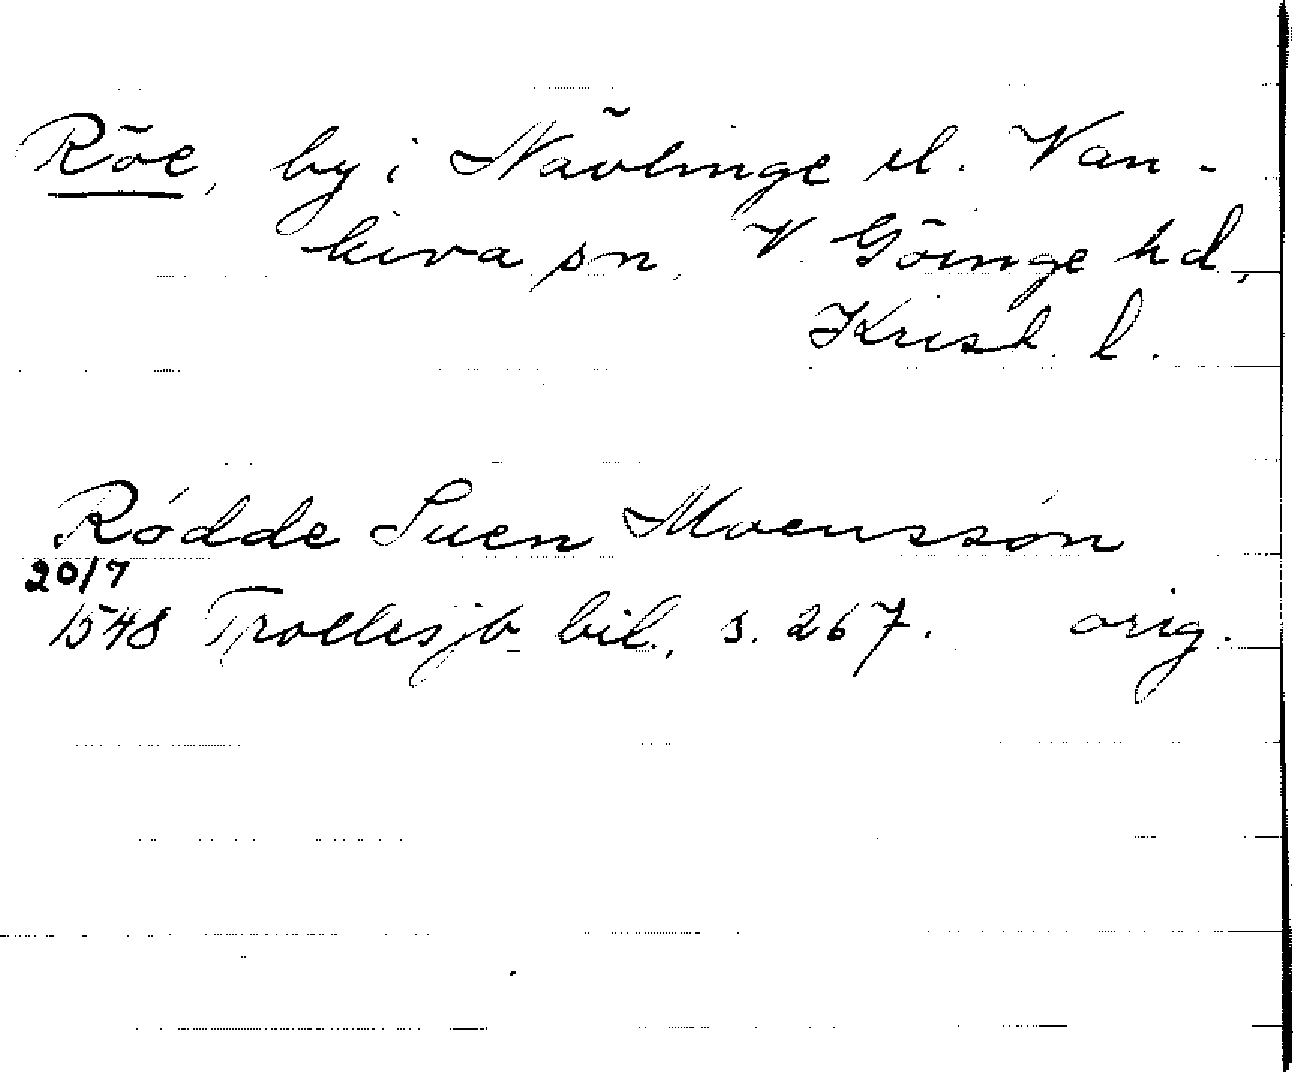 Röe, by i Nävlinge el. Van-
kiva sn, V. Göinge hd,
Krist. l.
Rødde Suen Moenssøn
20/7
1548 Trollesjb bil., s. 267. orig.